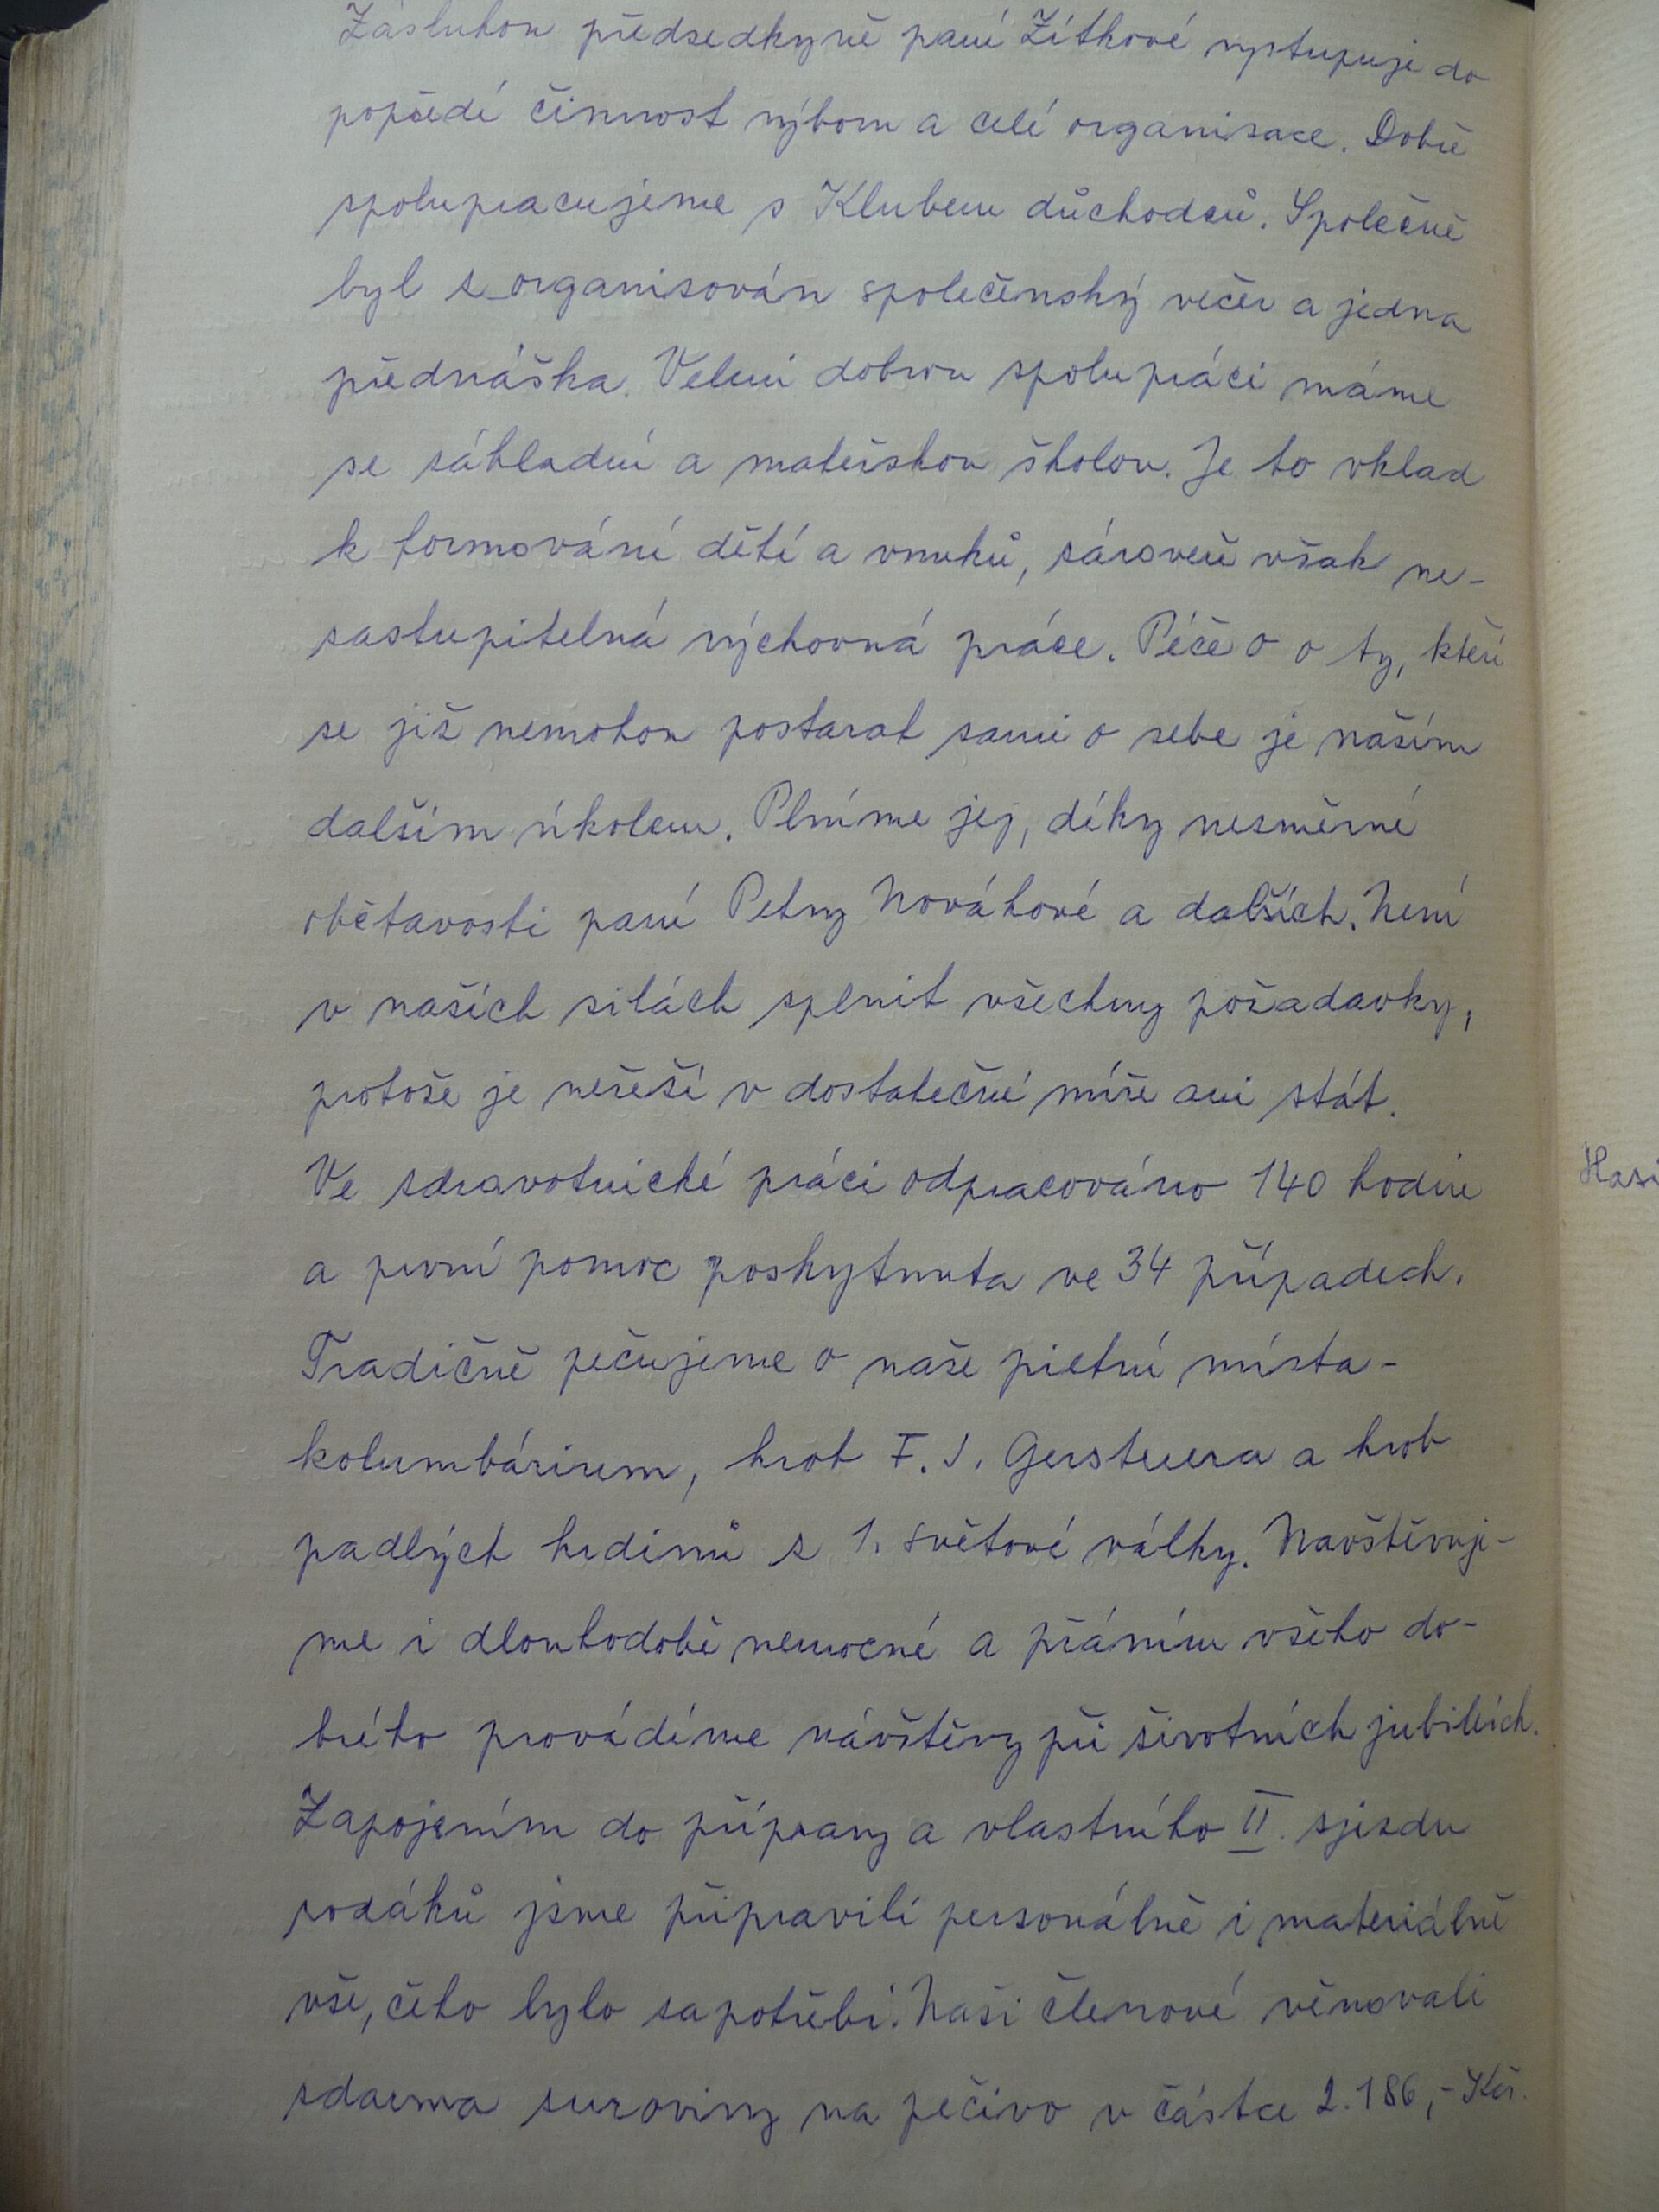 Zásluhou předsedkyně paní Zítkové vystupuje do
popředí činnost výboru a celé organisace. Dobře
spolupracujeme s Klubem důchodců. Společně
byl z organisován společenský večer a jedna
přednáška. Velmi dobrou spolupráci máme
se základní a mateřskou školou. Je to vklad
k formování dětí a vnuků, zároveň však ne-
zastupitelná výchovná práce. Péče o o ty, kteří
se již nemohou postarat sami o sebe je naším
dalším úkolem. Plníme jej, díky nesměrné
obětavosti paní Petry Novákové a dalších. Není
v našich silách splnit všechny požadavky,
protože je neřeší v dostatečné míře ani stát.
Ve zdravotnické práci odpracováno 140 hodin
a první pomoc poskytnuta ve 34 případech.
Tradičně pečujeme o naše pietní místa-
kolumbárium, hrob F. J. Gerstnera a hrob
padlých hrdinů z 1. světové války. Navštěvuje-
me i dlouhodobě nemocné a přáním všeho do-
brého provádíme návštěvy při životních jubileích.
Zapojením do přípravy a vlastního II. sjezdu
rodáků jsme připravili personálně i materiálně
vše, čeho bylo zapotřebí. Naši členové věnovali
zdarma suroviny na pečivo v částce 2.186,- Kčs.